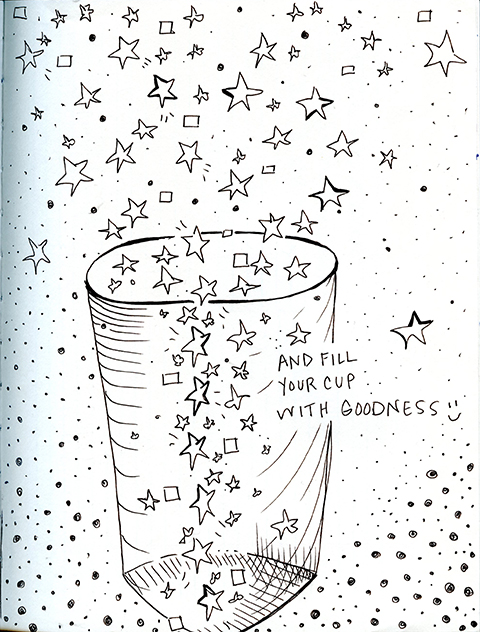 AND FILL
YOUR CUP
WITH GOODNESS :)